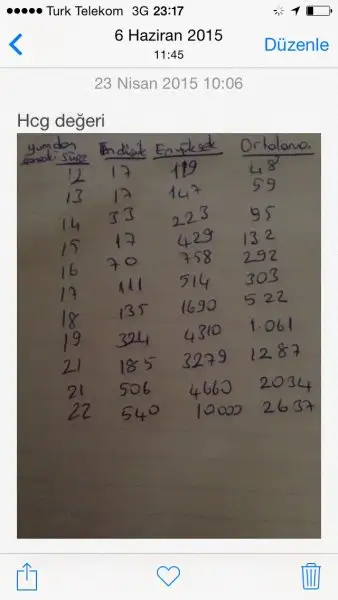 Turk Telekom 3G 23:17
6 Haziran 2015
11:45
Düzenle
23 Nisan 2015 10:06
Hcg değeri
yumdan En düşük En yüksek Ortalama
sonraki süre
12 17 119 48
13 17 147 59
14 33 223 95
15 17 429 132
16 70 758 292
17 111 514 303
18 135 1690 522
19 324 4310 1.061
21 185 3279 1287
21 506 4660 2034
22 540 10000 2637